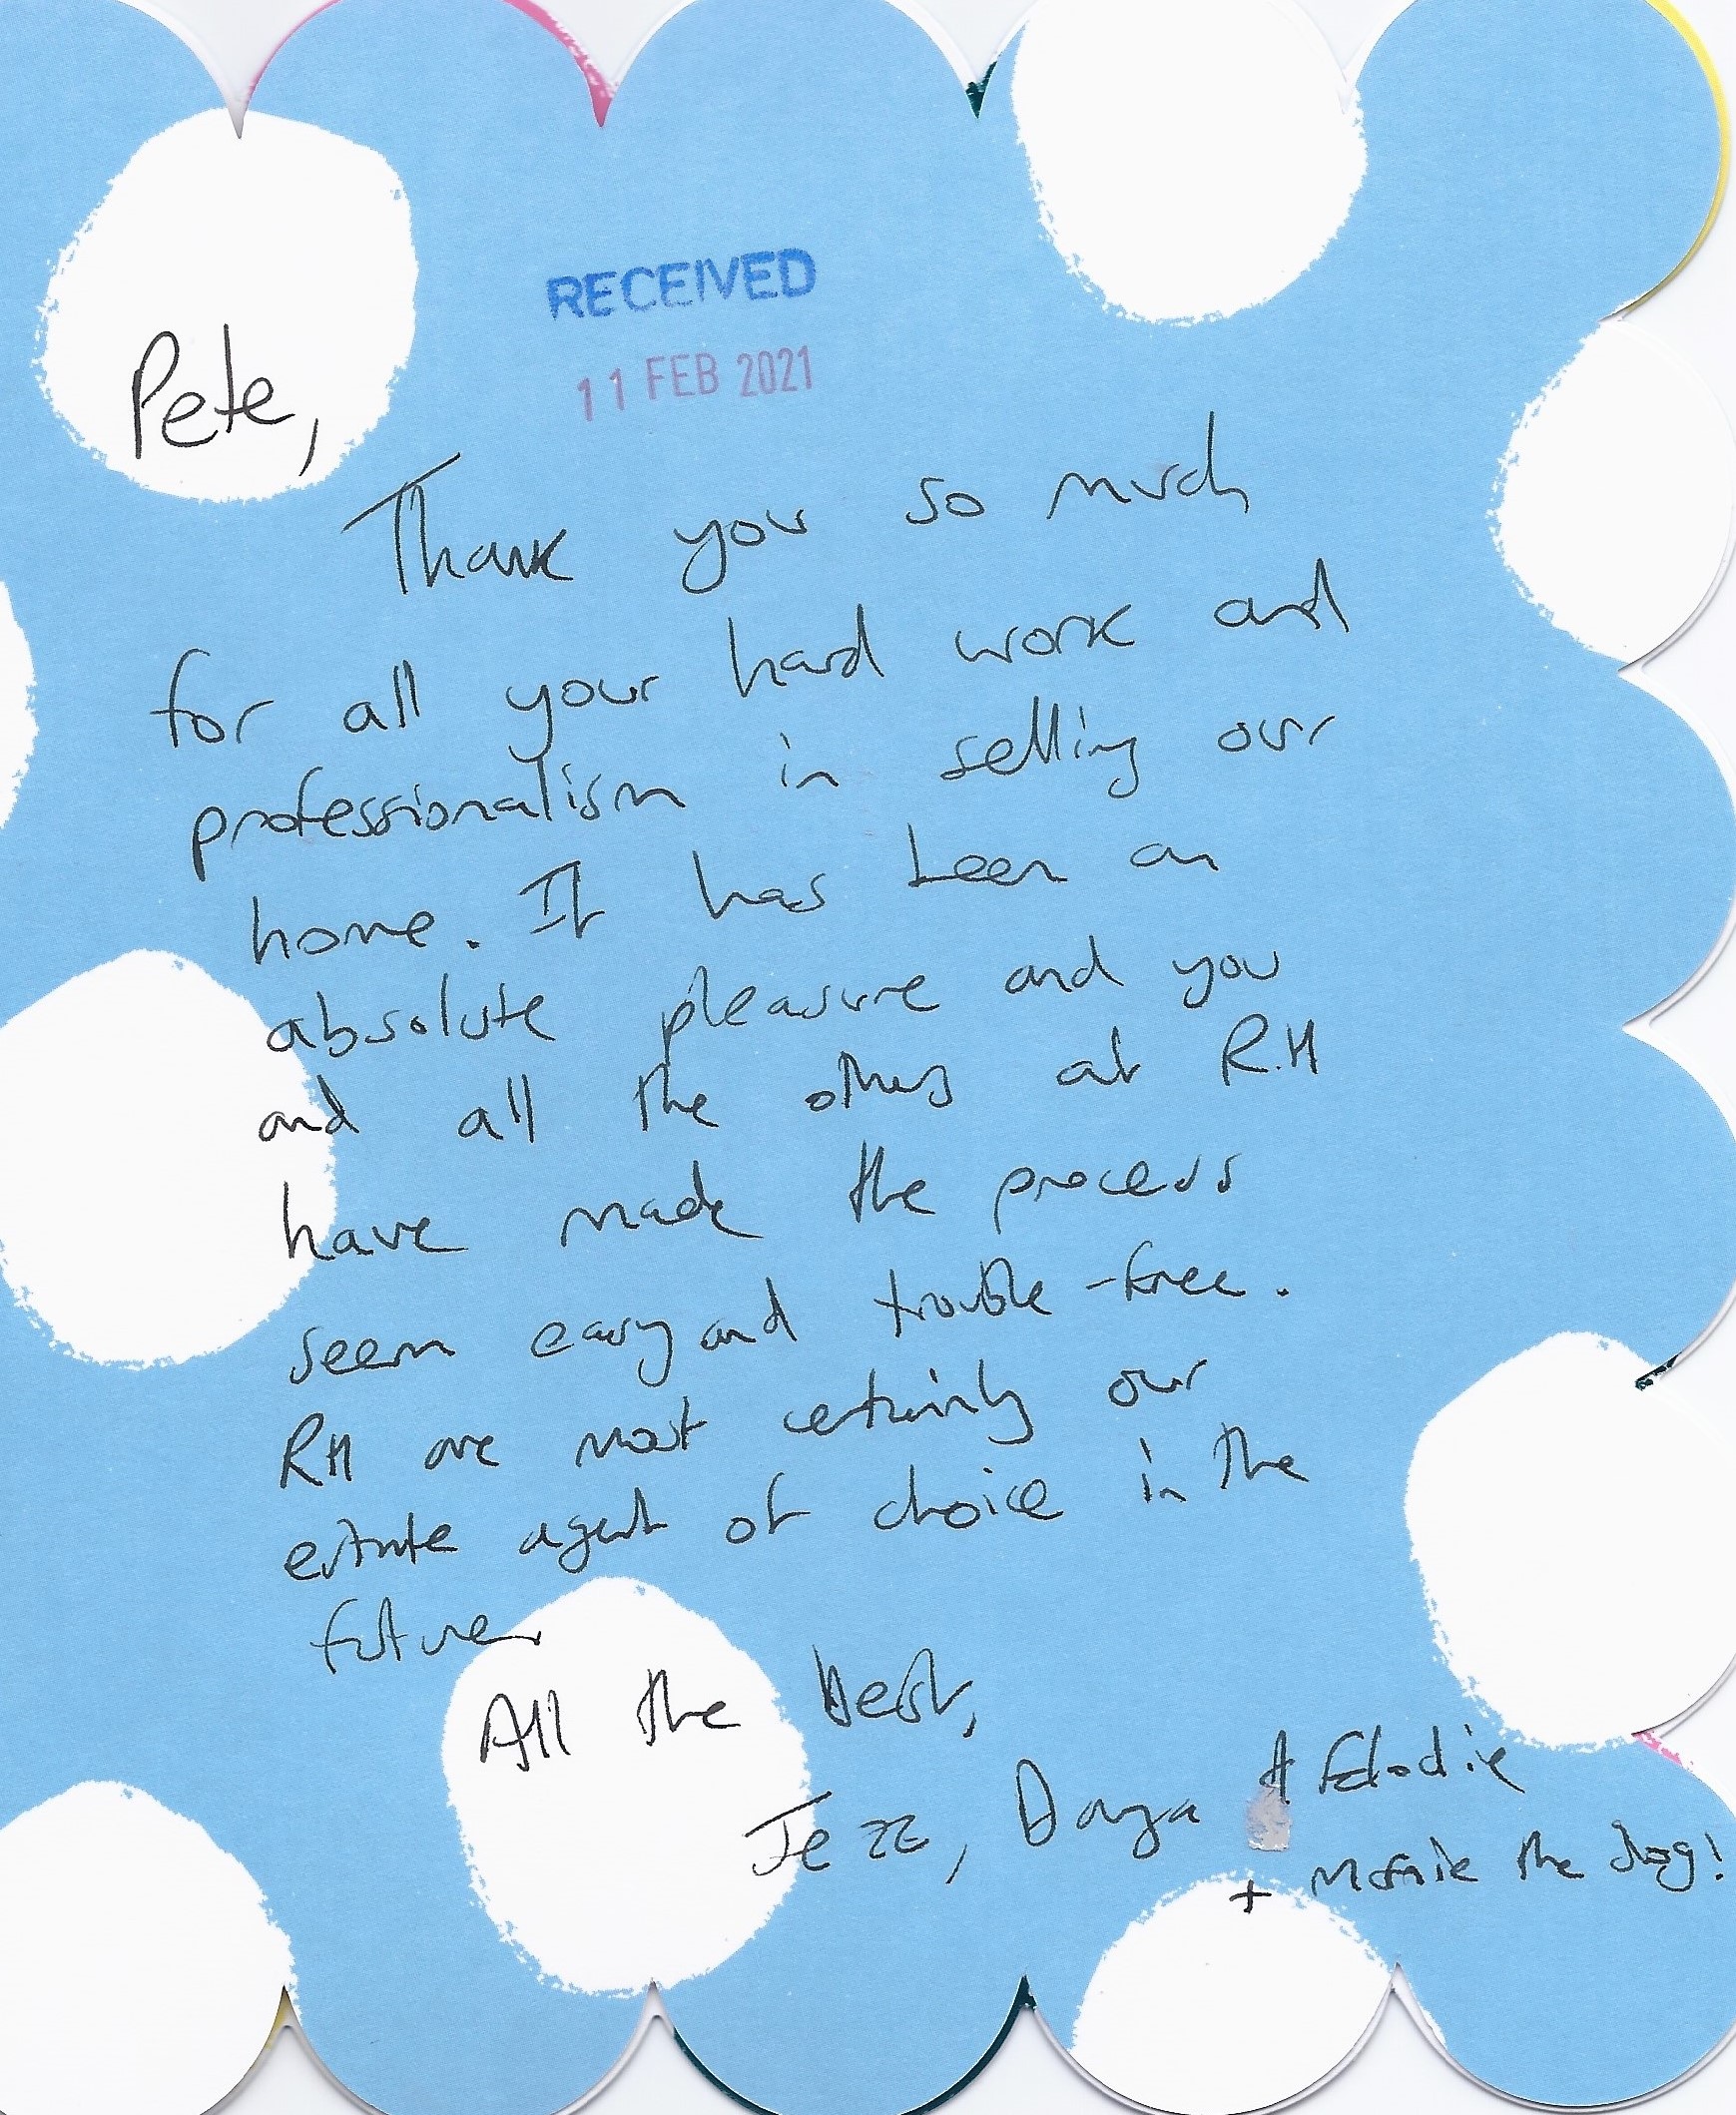 RECEIVED
11 FEB 2021
Pete,
Thank you so much
for all your hard work and
professionalism in selling our
home. It has been an
absolute pleasure and you
and all the others at R.H
have made the process
seem easy and trouble-free.
RH are most certainly our
estate agent of choice in the
future.
All the best,
Jezz, & Elodie
+ the dog!